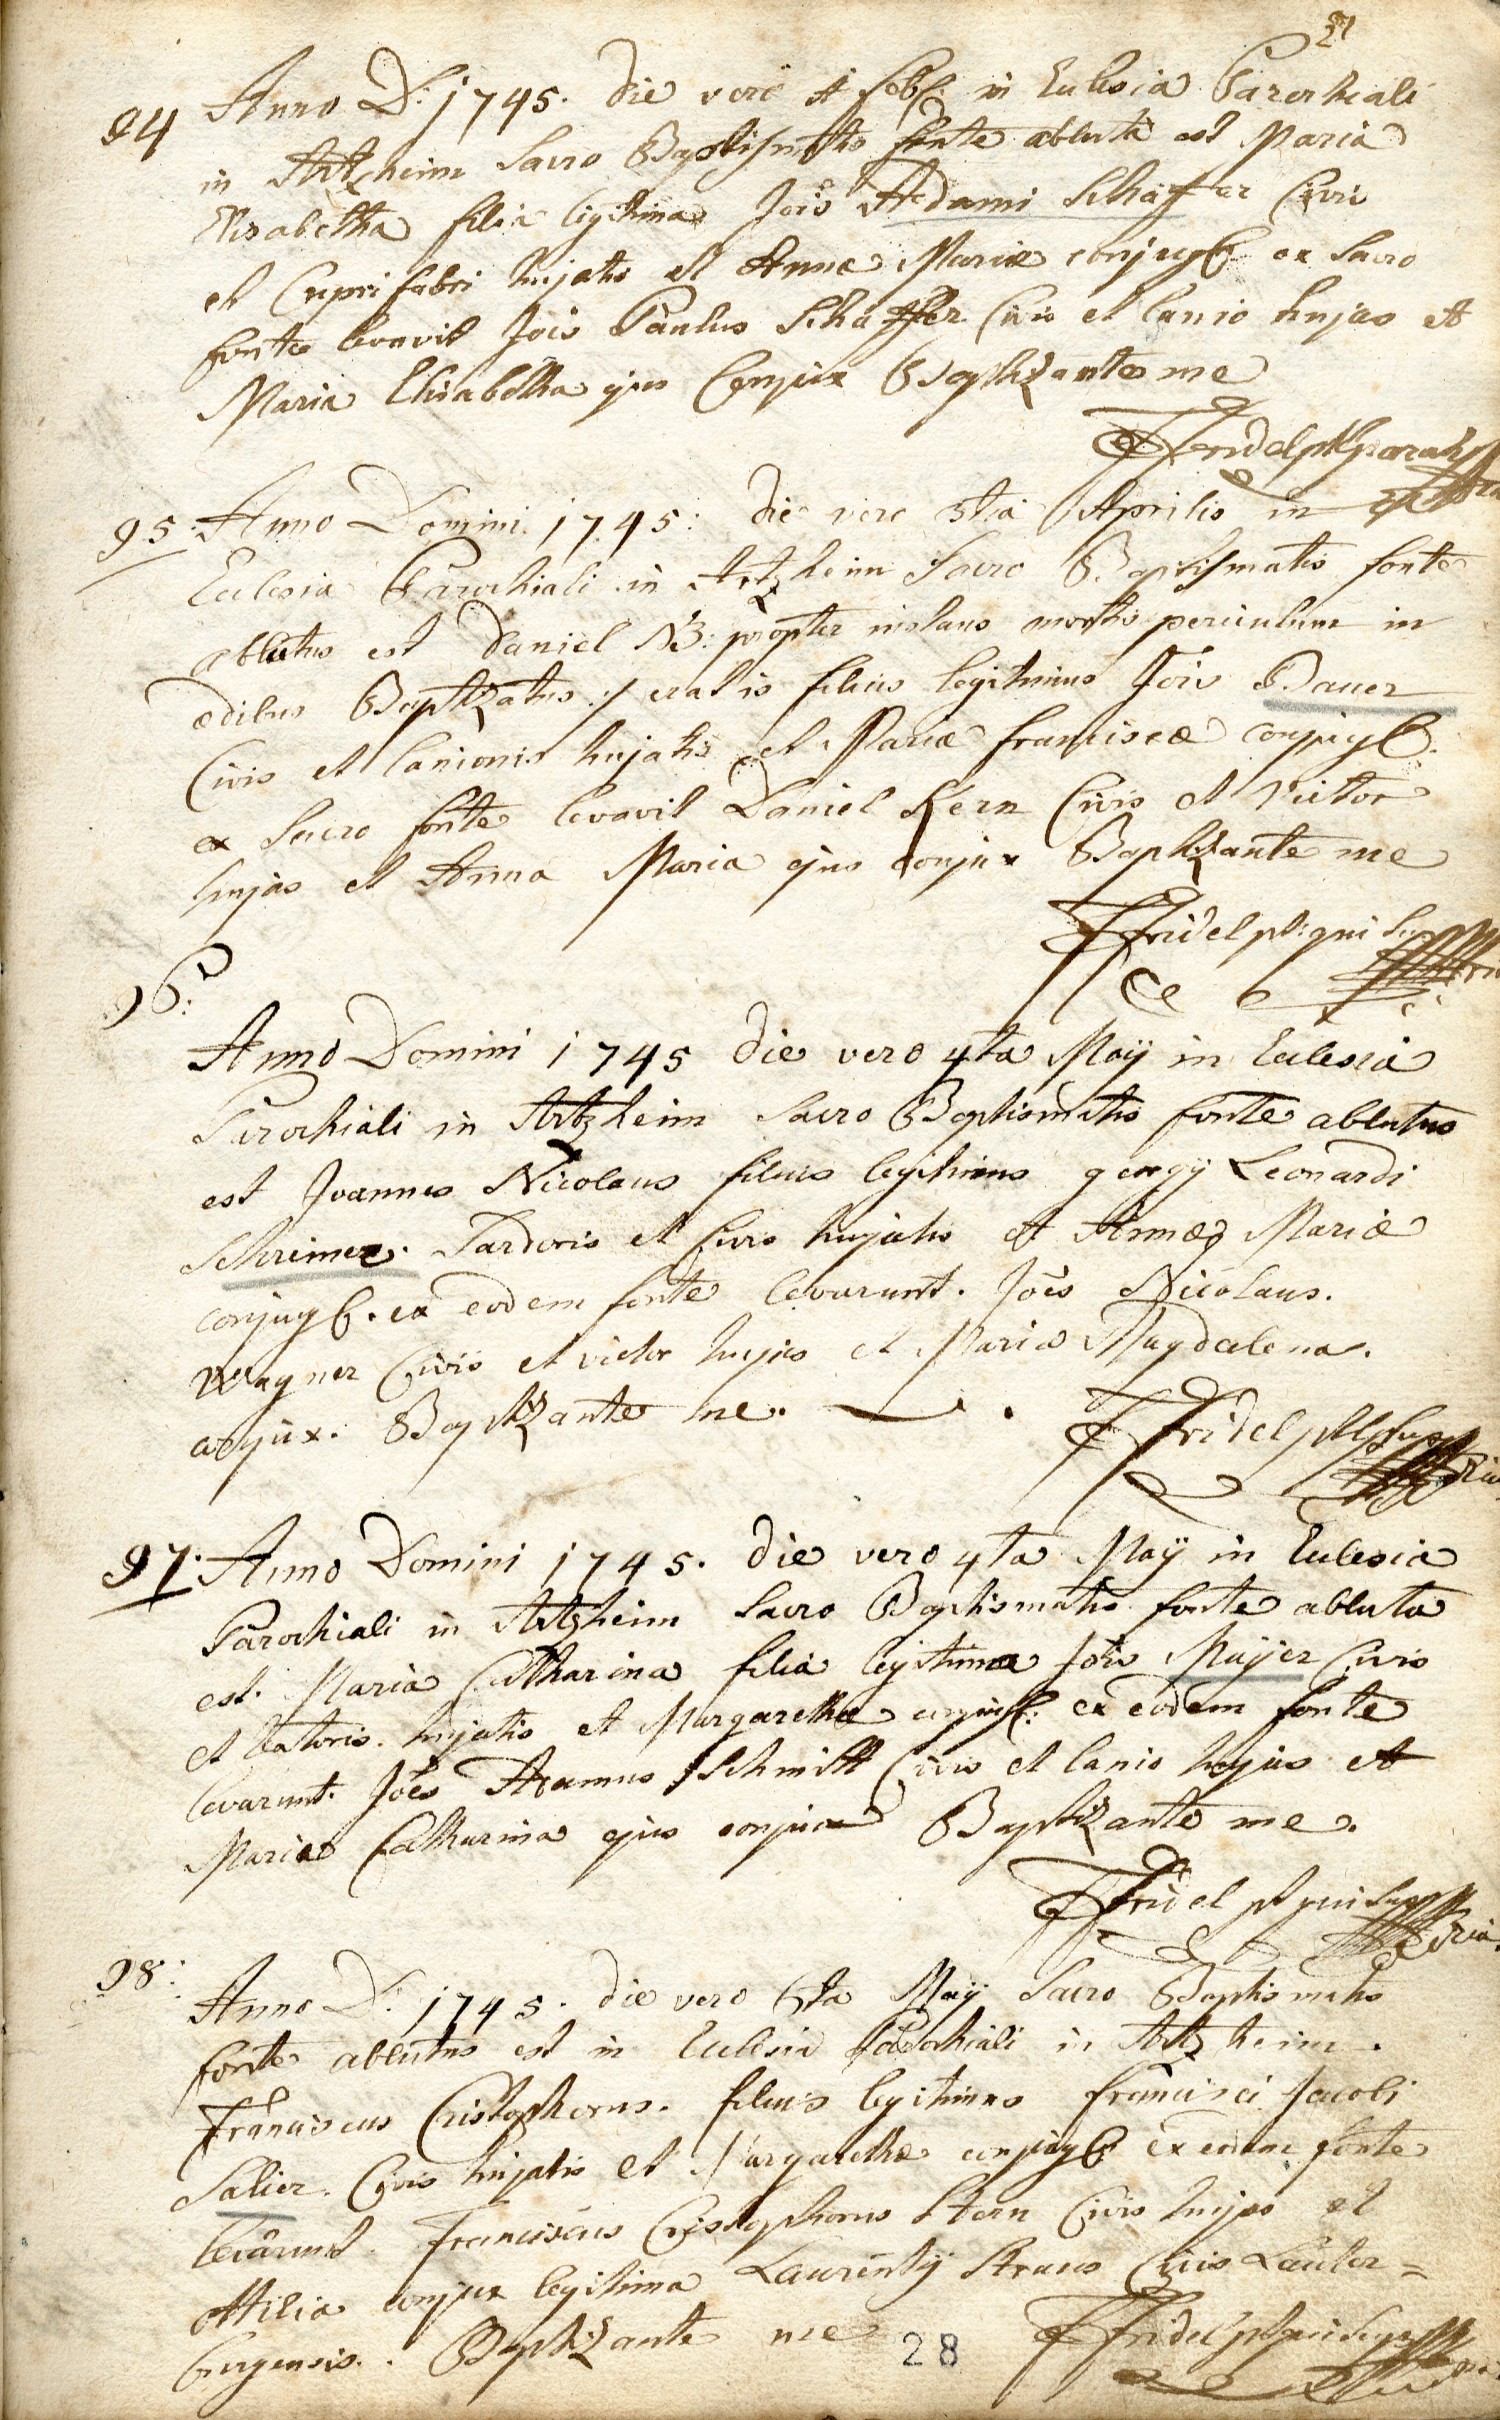 27
94 Anno D: 1745. die vero 4 febr: in Eclesia Parochiali
in Artzheim Sacro Baptismatis fonte abluta est Maria
Elisabetha filia legitima Jois Adami Schaffer Civis
et Cuprifabri hujatis et Annæ Mariæ conjugb. ex Sacro
fonte levavit Jois Paulus Schaffer Civis et lanio hujas et
Maria Elisabetha ejus Conjux Baptizante me
Fridel
95. Anno Domini 1745: die vero 5ta Aprilis in
Eclesia Parochiali in Artzheim Sacro Baptismatis fonte
ablutus est Daniel NB: propter instans mortis periculum in
ædibus Baptizatus :/ erat is filius legitimus Jois Bauer
Civis et lanionis hujatis et Mariæ Franciscæ conjugb.
ex Sacro fonte levavit Daniel Kern Civis et Victor
hujas et Anna Maria ejus conjux Baptizante me
Fridel pt: qui supra
96:
Anno Domini 1745 die vero 4ta Maÿ in Eclesia
Parochiali in Artzheim Sacro Baptismatis fonte ablutus
est Joannes Nicolaus filius legitimus georgÿ Leonardi
Schreiner. Sardoris et Civis hujatis et Annæ Mariæ
conjugb. ex eodem fonte levarunt. Joes Nicolaus.
Wagner Civis et victor hujas et Maria Magdalena.
conjux. Baptizante me.
Fridel
97. Anno Domini 1745. die vero 4ta Maÿ in Eclesia
Parochiali in Artzheim Sacro Baptismatis fonte abluta
est. Maria Catharina filia legitima Jois Maÿer Civis
et Textoris. hujatis et Margarethæ conjugb: ex eodem fonte
levarunt. Joes Adamus Schmitt Civis et lanio hujas et
Maria Catharina ejus conjux Baptizante me.
Fridel pt qui supra
98: Anno D: 1745. die vero 6ta Maÿ Sacro Baptismatis
fonte ablutus est in Eclesia Parochiali in Artzheim.
Franciscus Cristophorus. filius legitimus Francisci Jacobi
Salier. Civis hujatis et Margarethæ conjugb ex eodem fonte
levarunt. Franciscus Cristophorus Stern Civis hujas et
Ottilia conjux legitima Laurentÿ Straus Civis Lauter=
burgensis.. Baptizante me
Fridel
28